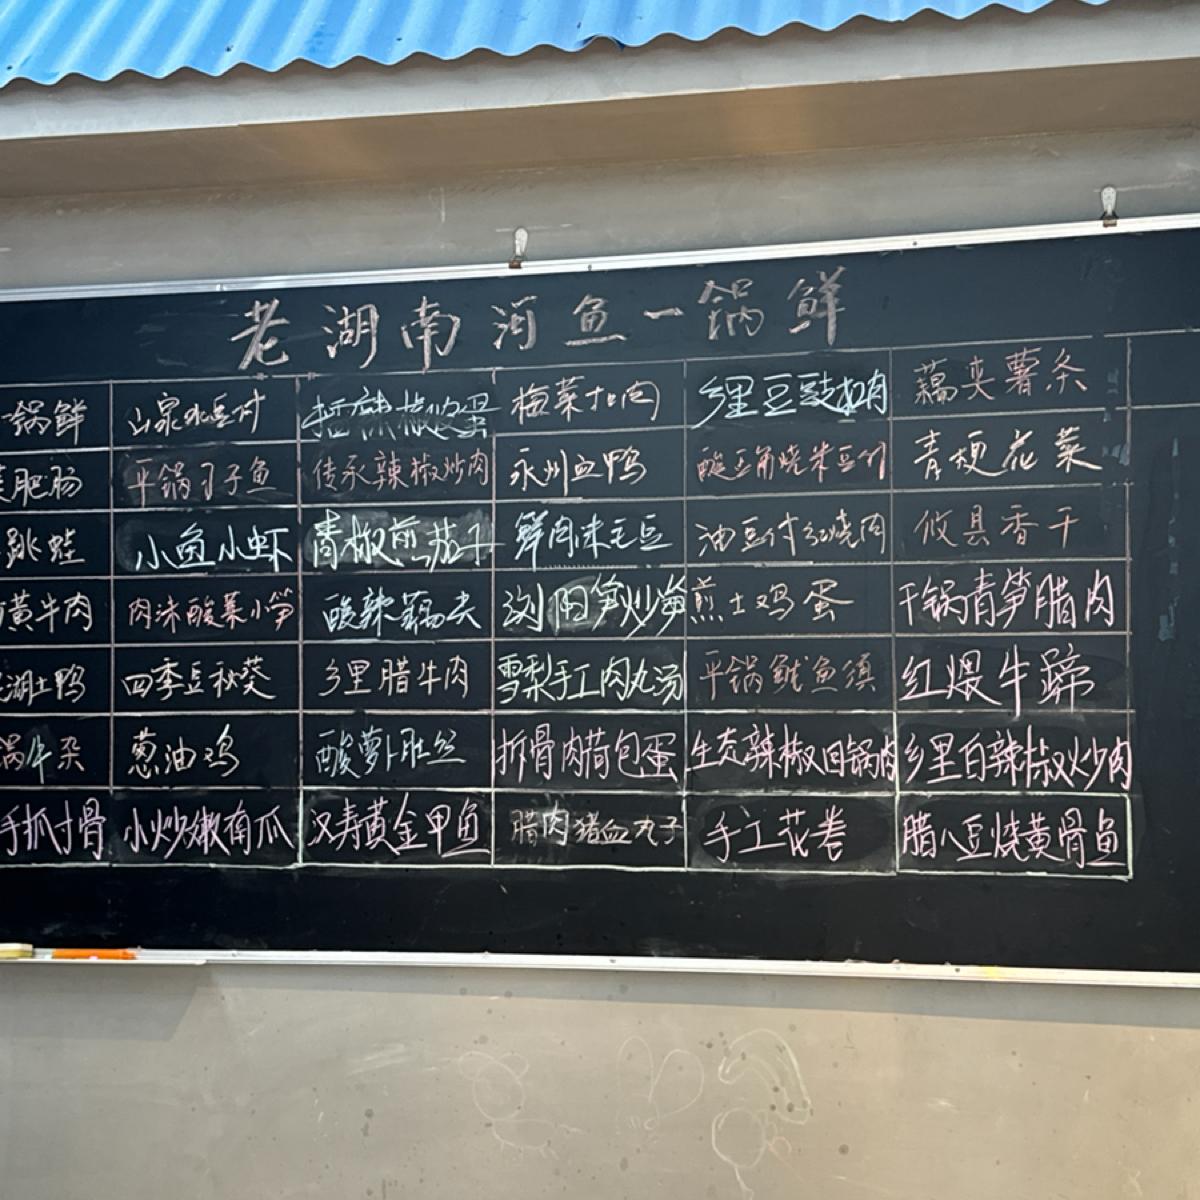 老湖南河鱼一锅鲜
锅鲜 山泉水豆付 擂辣椒皮蛋 梅菜扣肉 乡里豆豉 藕夹薯条
肥肠 平锅刁子鱼 传承辣椒炒肉 永州血鸭 酸豆角烧米豆付 青梗花菜
跳蛙 小鱼小虾 青椒煎茄子 鲜肉米毛豆 油豆付红烧肉 攸县香干
黄牛肉 肉沫酸菜小笋 酸辣藕尖 浏阳笋炒笋 煎土鸡蛋 干锅青笋腊肉
湖土鸭 四季豆秋葵 乡里腊牛肉 雪梨手工肉丸汤 平锅鱿鱼须 红煨牛蹄
锅牛杂 葱油鸡 酸萝卜肚丝 拆骨肉荷包蛋 生态辣椒回锅肉 乡里白辣椒炒肉
手抓寸骨 小炒嫩南瓜 汉寿黄金甲鱼 腊肉猪血丸子 手工花卷 腊八豆烧黄骨鱼